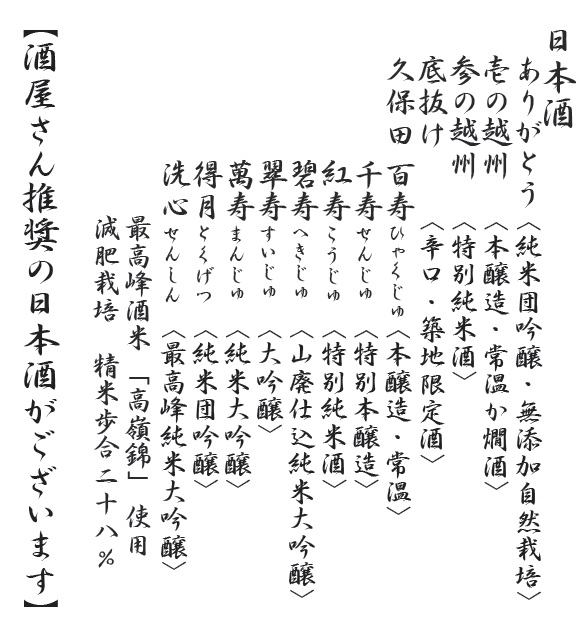 日本酒
ありがとう 〈純米団吟醸・無添加自然栽培〉
壱の越州 〈本醸造・常温か燗酒〉
参の越州 〈特別純米酒〉
底抜け 〈辛口・築地限定酒〉
久保田 百寿 ひゃくじゅ 〈本醸造・常温〉
千寿 せんじゅ 〈特別本醸造〉
紅寿 こうじゅ 〈特別純米酒〉
碧寿 へきじゅ 〈山廃仕込純米大吟醸〉
翠寿 すいじゅ 〈大吟醸〉
萬寿 まんじゅ 〈純米大吟醸〉
得月 とくげつ 〈純米団吟醸〉
洗心 せんしん 〈最高峰純米大吟醸〉
最高峰酒米「高嶺錦」使用
減肥栽培 精米歩合二十八%
【酒屋さん推奨の日本酒がございます】